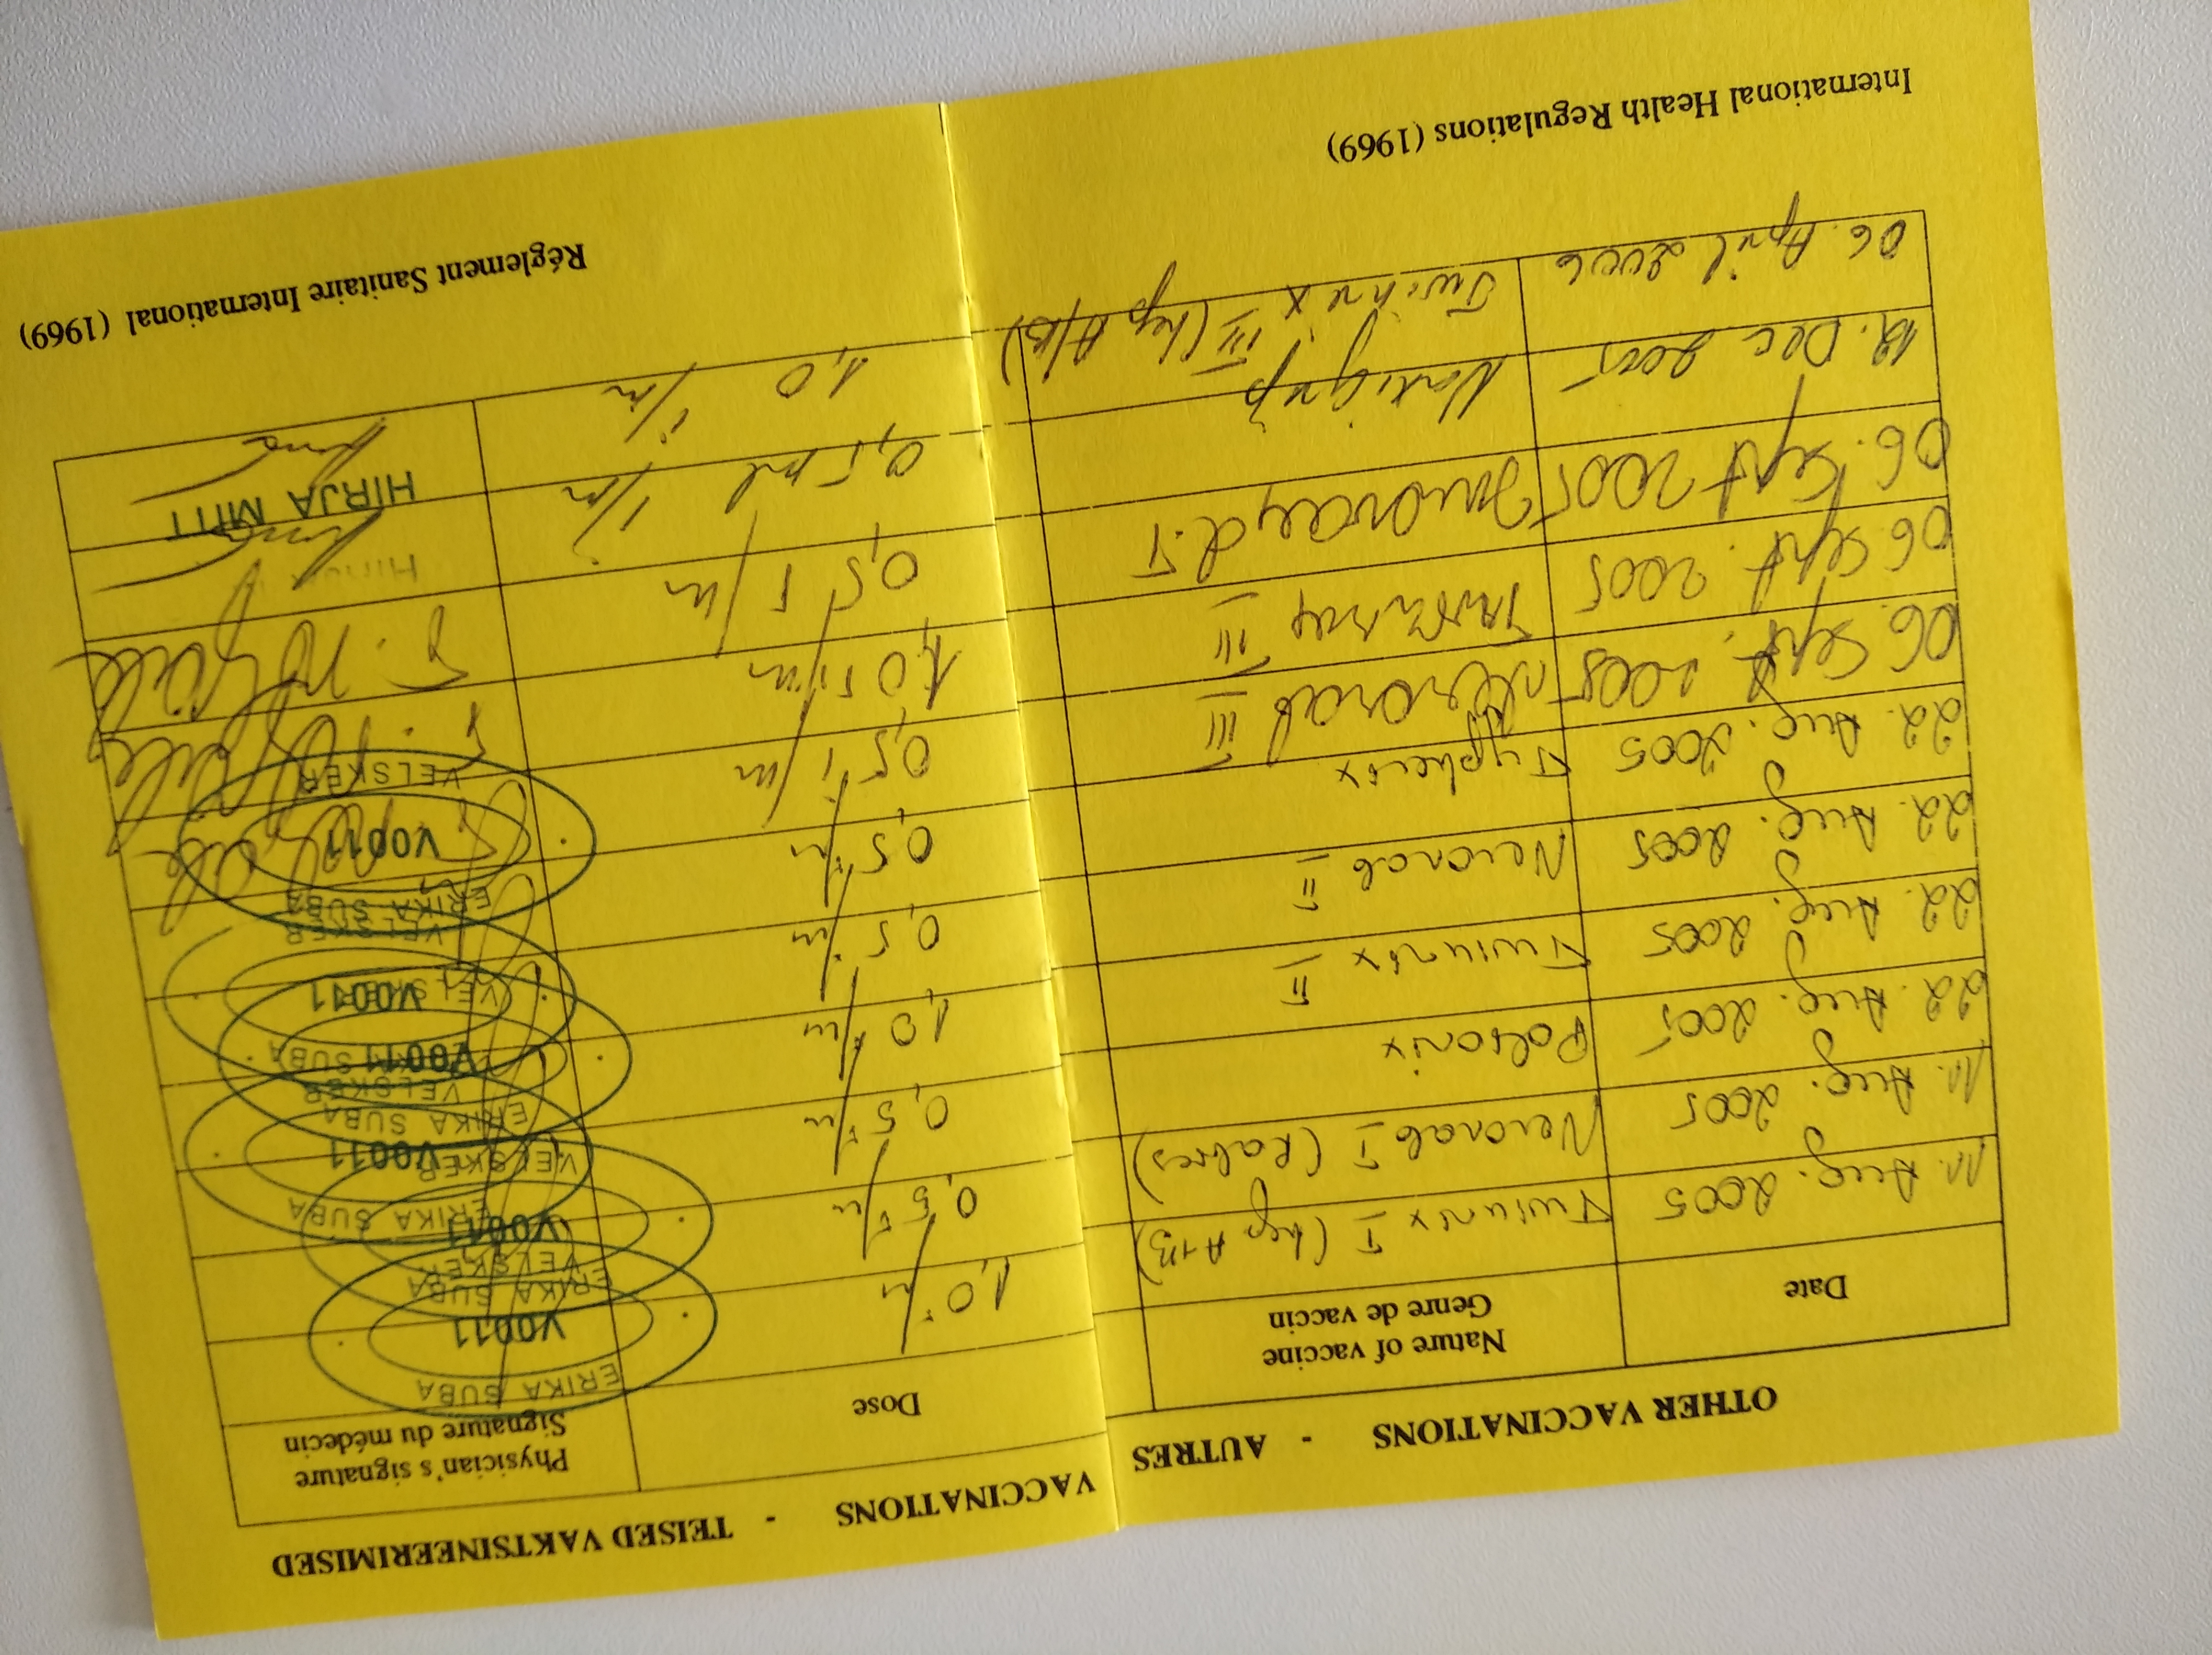 OTHER VACCINATIONS - AUTRES VACCINATIONS - TEISED VAKTSINEERIMISED
Date
Nature of vaccine
Genre de vaccin
Dose
Physician's signature
Signature du médecin
11. Aug. 2005 Twinrix I (hep A+B) 1,0 i/m
11. Aug. 2005 Verorab I (Rabies) 0,5 i/m
22. Aug. 2005 Poliorix 0,5 i/m
22. Aug. 2005 Twinrix II 1,0 i/m
22. Aug. 2005 Verorab II 0,5 i/m
22. Aug. 2005 Typherix 0,5 i/m
06. Sept. 2005 Verorab III 0,5 i/m
06. Sept. 2005 III 1,0 i/m
06. Sept 2005 Imovax d.T 0,5 i/m
12. Dec 2005 0,5 ml i/m
06. April 2006 Twinrix III (hep A/B) 1,0 i/m
ERIKA SUBA
V0011
VELSKER
ERIKA SUBA
V0011
VELSKER
ERIKA SUBA
V0011
VELSKER
ERIKA SUBA
V0011
VELSKER
V0011
VELSKER
ERIKA SUBA
V0011
VELSKER
HIRJA MITT
International Health Regulations (1969)
Réglement Sanitaire International (1969)